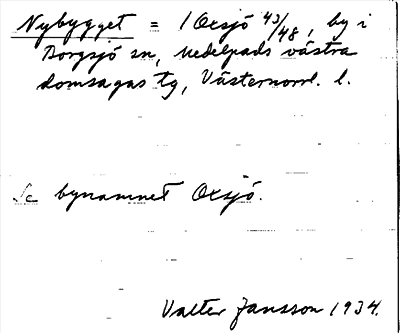 Nybygget = 1 Oxsjö 43/48, by i
Borgsjö sn, Medelpads västra
domsagas tg, Västernorrl. l.
Se bynamnet Oxsjö.
Valter Jansson 1934.